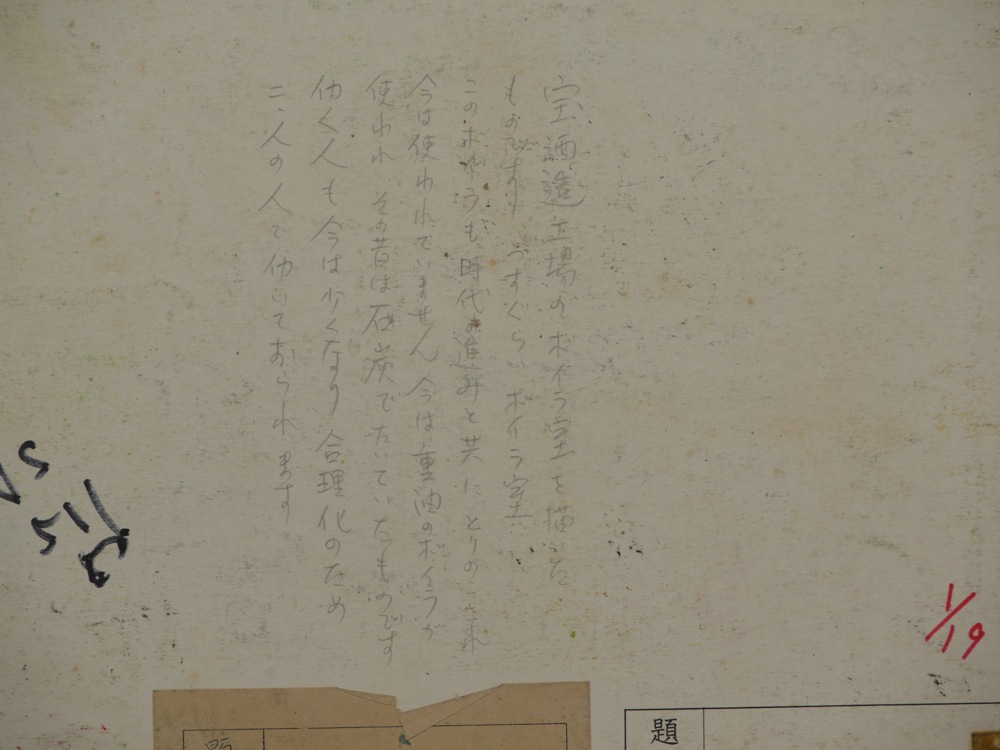 宝酒造工場のボイラ室を描いた
ものです うすぐらい ボイラ室
このボイラも、時代の進みと共にとりのこされ
今は使われていません 今は重油のボイラが
使われ その昔は石炭でたいていたものです
仂く人も今は少くなり 合理化のため
二、人の人で仂いておられます
1/19
題
題